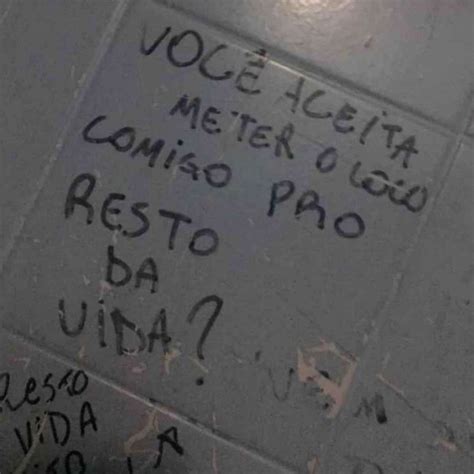 VOCÊ ACEITA
METER O LOCO
COMIGO PRO
RESTO
DA
VIDA?
VEM
RESTO
VIDA